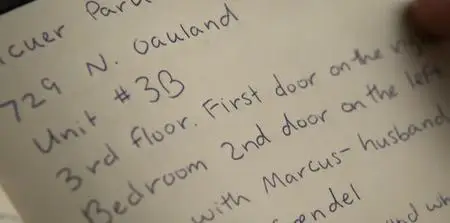 729 N. Oauland
Unit #3B
3rd floor. First door on the right
Bedroom 2nd door on the left
with Marcus- husband